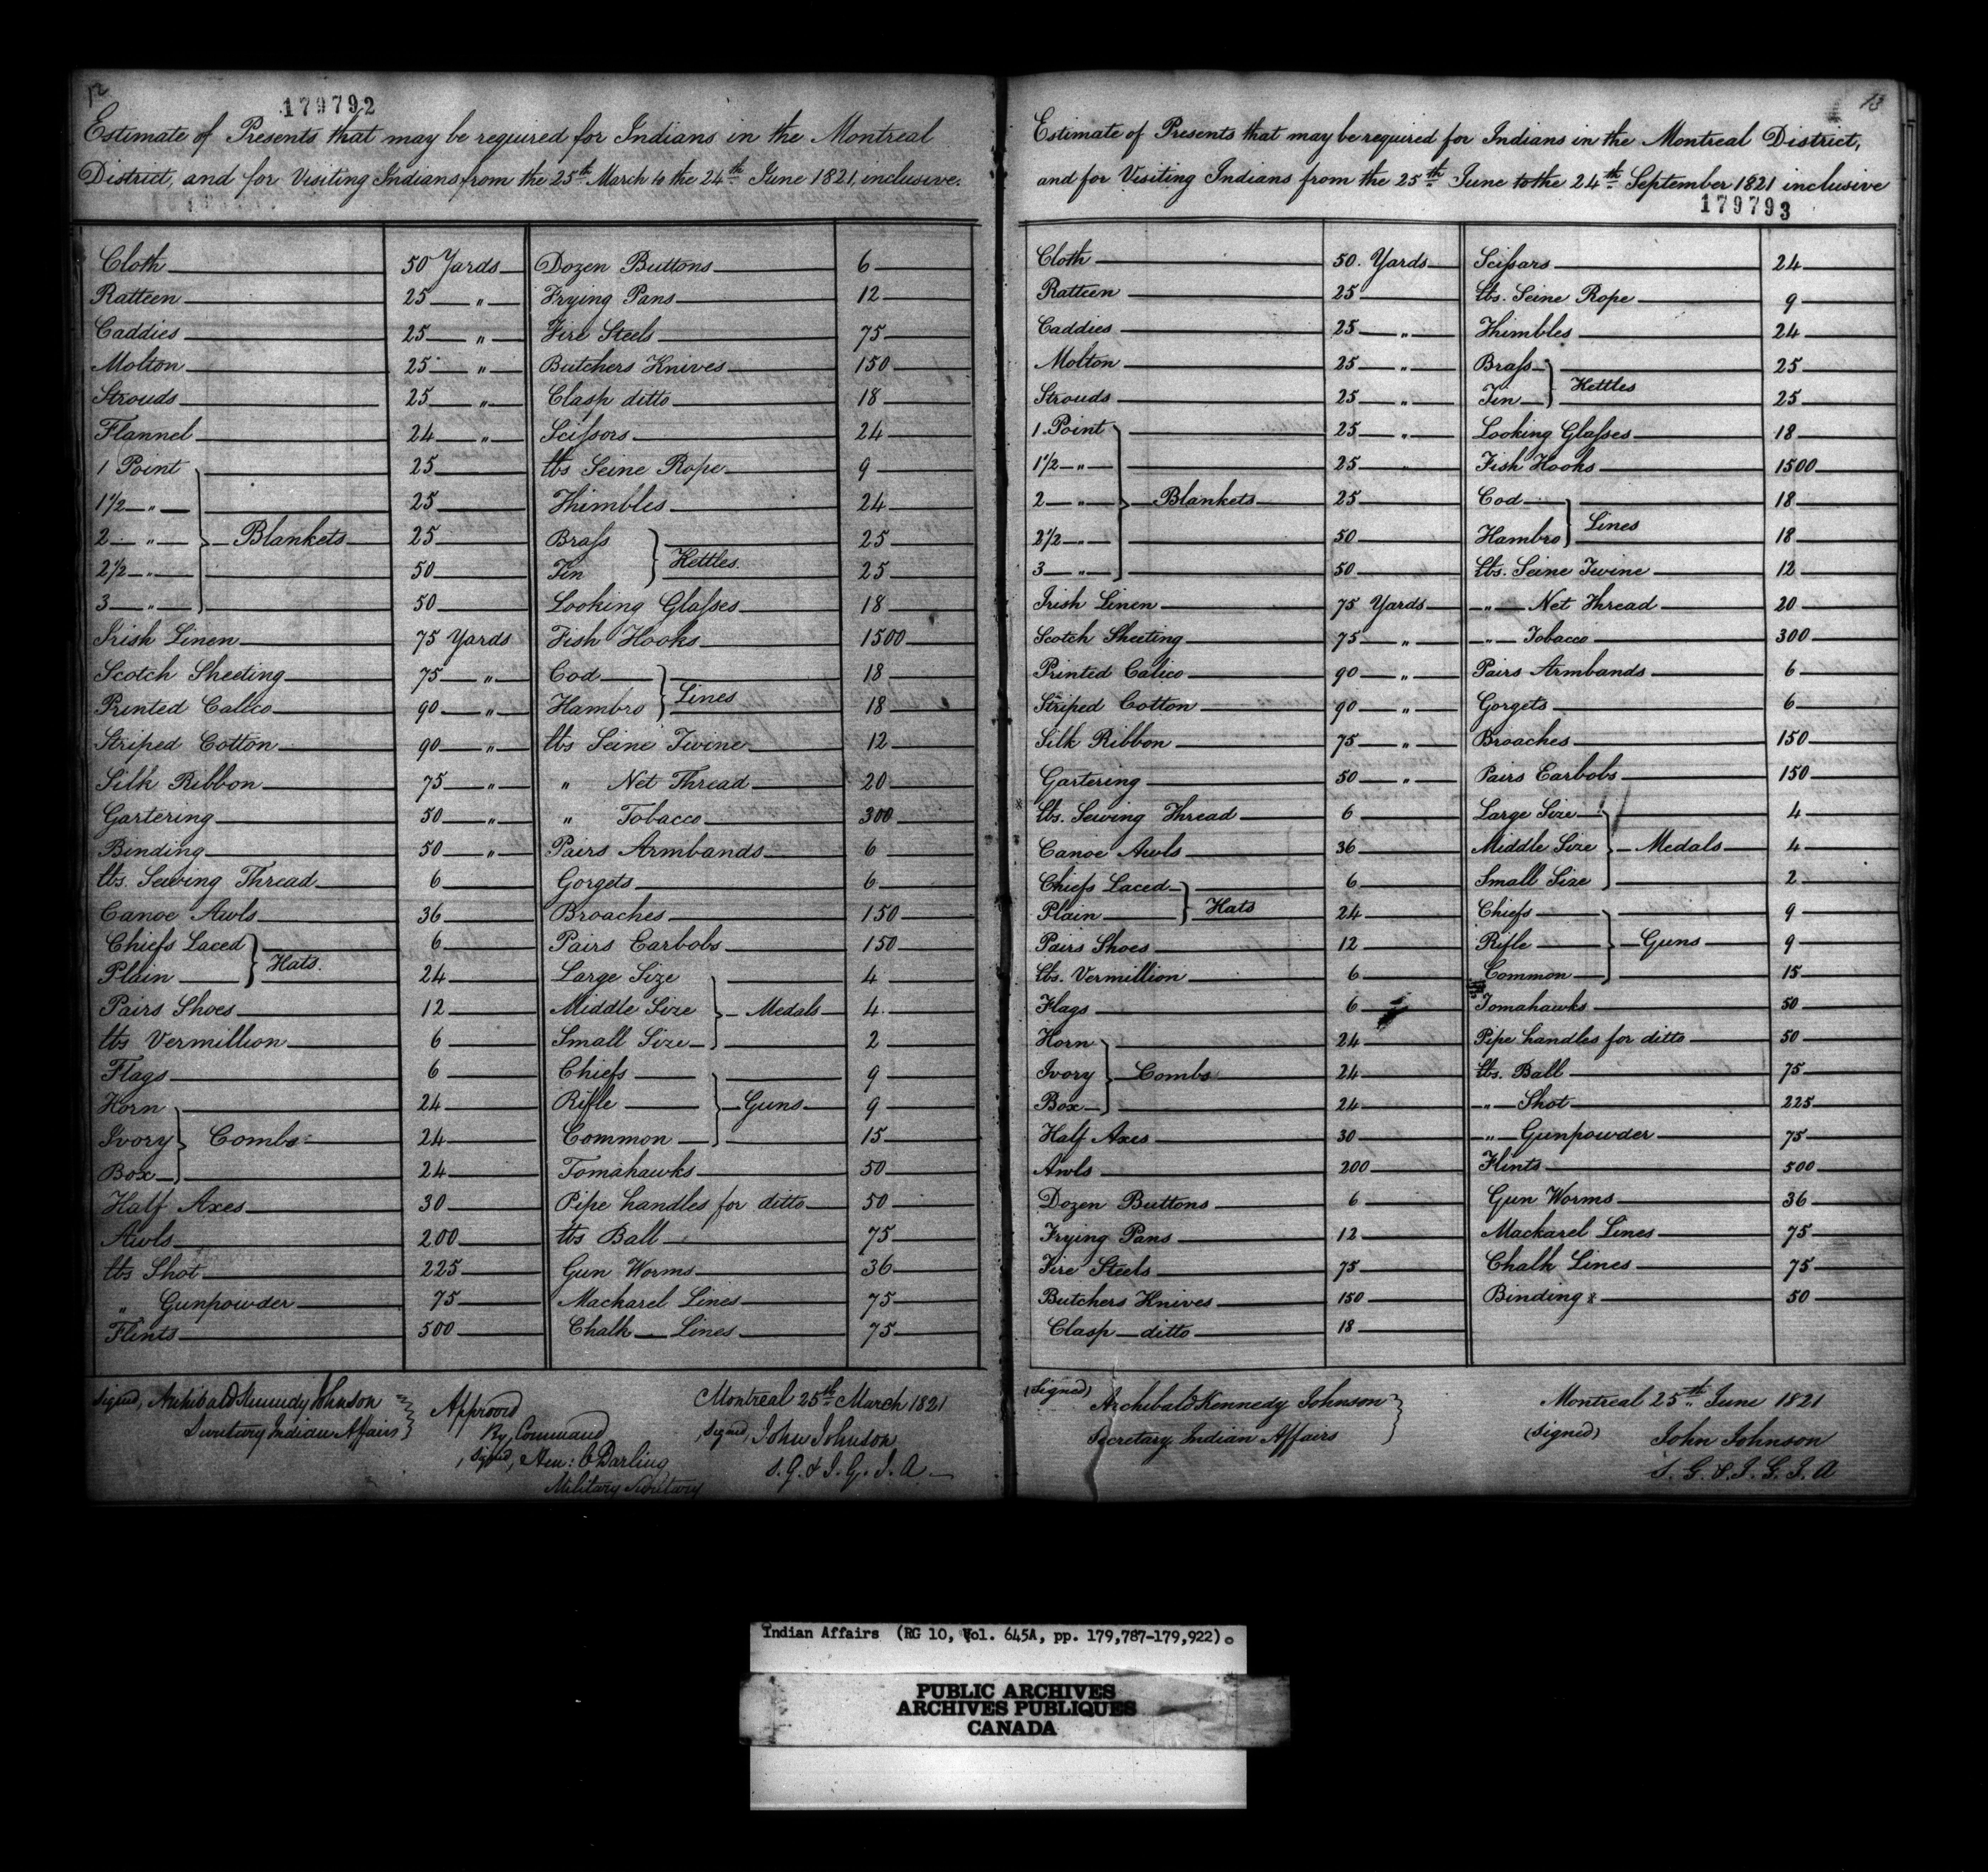 12
179792
Estimate of Presents that may be required for Indians in the Montreal
District, and for Visiting Indians from the 25th March to the 24th June 1821, inclusive.
Cloth 50 Yards
Ratteen 25 "
Caddies 25 "
Molton 25 "
Strouds 25 "
Flannel 24 "
1 Point 25
1 1/2 " 25
2 " Blankets 25
2 1/2 " 50
3 " 50
Irish Linen 75 Yards
Scotch Sheeting 75 "
Printed Calico 90 "
Striped Cotton 90 "
Silk Ribbon 75 "
Gartering 50 "
Binding 50 "
lbs. Sewing Thread 6
Canoe Awls 36
Chiefs Laced 6
Plain Hats. 24
Pairs Shoes 12
lbs Vermillion 6
Flags 6
Horn 24
Ivory Combs 24
Box 24
Half Axes 30
Awls 200
lbs Shot 225
" Gunpowder 75
Flints 500
Dozen Buttons 6
Frying Pans 12
Fire Steels 75
Butchers Knives 150
Clasp ditto 18
Scissors 24
lbs Seine Rope 9
Thimbles 24
Brass 25
Tin Kettles. 25
Looking Glasses 18
Fish Hooks 1500
Cod 18
Hambro Lines 18
lbs Seine Twine 12
" Net Thread 20
" Tobacco 300
Pairs Armbands 6
Gorgets 6
Broaches 150
Pairs Earbobs 150
Large Size 4
Middle Size Medals 4
Small Size 2
Chiefs 9
Rifle Guns 9
Common 15
Tomahawks 50
Pipe handles for ditto 50
lbs Ball 75
Gun Worms 36
Mackarel Lines 75
Chalk Lines 75
Signed, Archibald Kennedy Johnson
Secretary Indian Affairs
Approved
By Command
Signed, Hen: C Darling
Military Secretary
Montreal 25th March 1821
Signed, John Johnson
S. G. & I. G. I. A
13
Estimate of Presents that may be required for Indians in the Montreal District,
and for Visiting Indians from the 25th June to the 24th September 1821 inclusive
179793
Cloth 50. Yards
Ratteen 25
Caddies 25 "
Molton 25 "
Strouds 25 "
1 Point 25 "
1 1/2 " 25
2 " Blankets 25
2 1/2 " 50
3 " 50
Irish Linen 75 Yards
Scotch Sheeting 75 "
Printed Calico 90 "
Striped Cotton 90 "
Silk Ribbon 75 "
Gartering 50 "
lbs. Sewing Thread 6
Canoe Awls 36
Chiefs Laced 6
Plain Hats 24
Pairs Shoes 12
lbs. Vermillion 6
Flags 6
Horn 24
Ivory Combs 24
Box 24
Half Axes 30
Awls 200
Dozen Buttons 6
Frying Pans 12
Fire Steels 75
Butchers Knives 150
Clasp ditto 18
Scissars 24
lbs. Seine Rope 9
Thimbles 24
Brass 25
Tin Kettles 25
Looking Glasses 18
Fish Hooks 1500
Cod 18
Hambro Lines 18
lbs. Seine Twine 12
" Net Thread 20
" Tobacco 300
Pairs Armbands 6
Gorgets 6
Broaches 150
Pairs Earbobs 150
Large Size 4
Middle Size Medals 4
Small Size 2
Chiefs 9
Rifle Guns 9
Common 15
Tomahawks 50
Pipe handles for ditto 50
lbs. Ball 75
" Shot 225
" Gunpowder 75
Flints 500
Gun Worms 36
Mackarel Lines 75
Chalk Lines 75
Binding 50
(Signed) Archibald Kennedy Johnson
Secretary Indian Affairs
Montreal 25th June 1821
(Signed) John Johnson
S. G. & I. G. I. A
Indian Affairs (RG 10, Vol. 645A, pp. 179,787-179,922).
PUBLIC ARCHIVES
ARCHIVES PUBLIQUES
CANADA